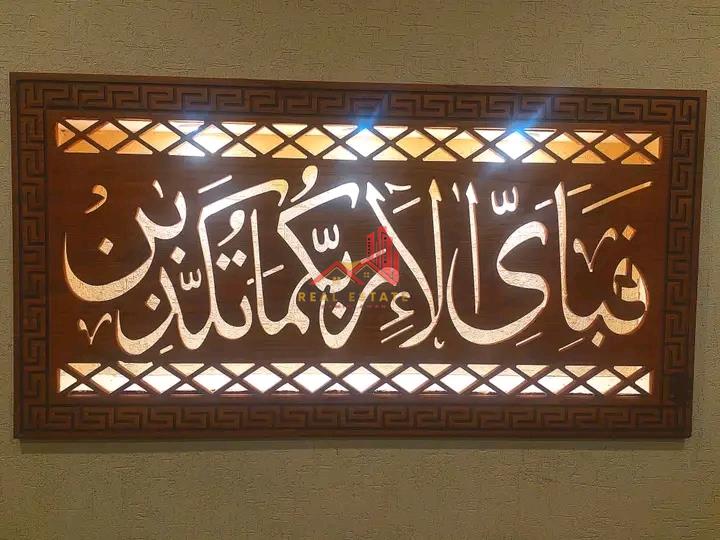 فَبِأَىِّ اٰلَآءِ رَبِّكُمَا تُكَذِّبٰنِ
REAL ESTATE